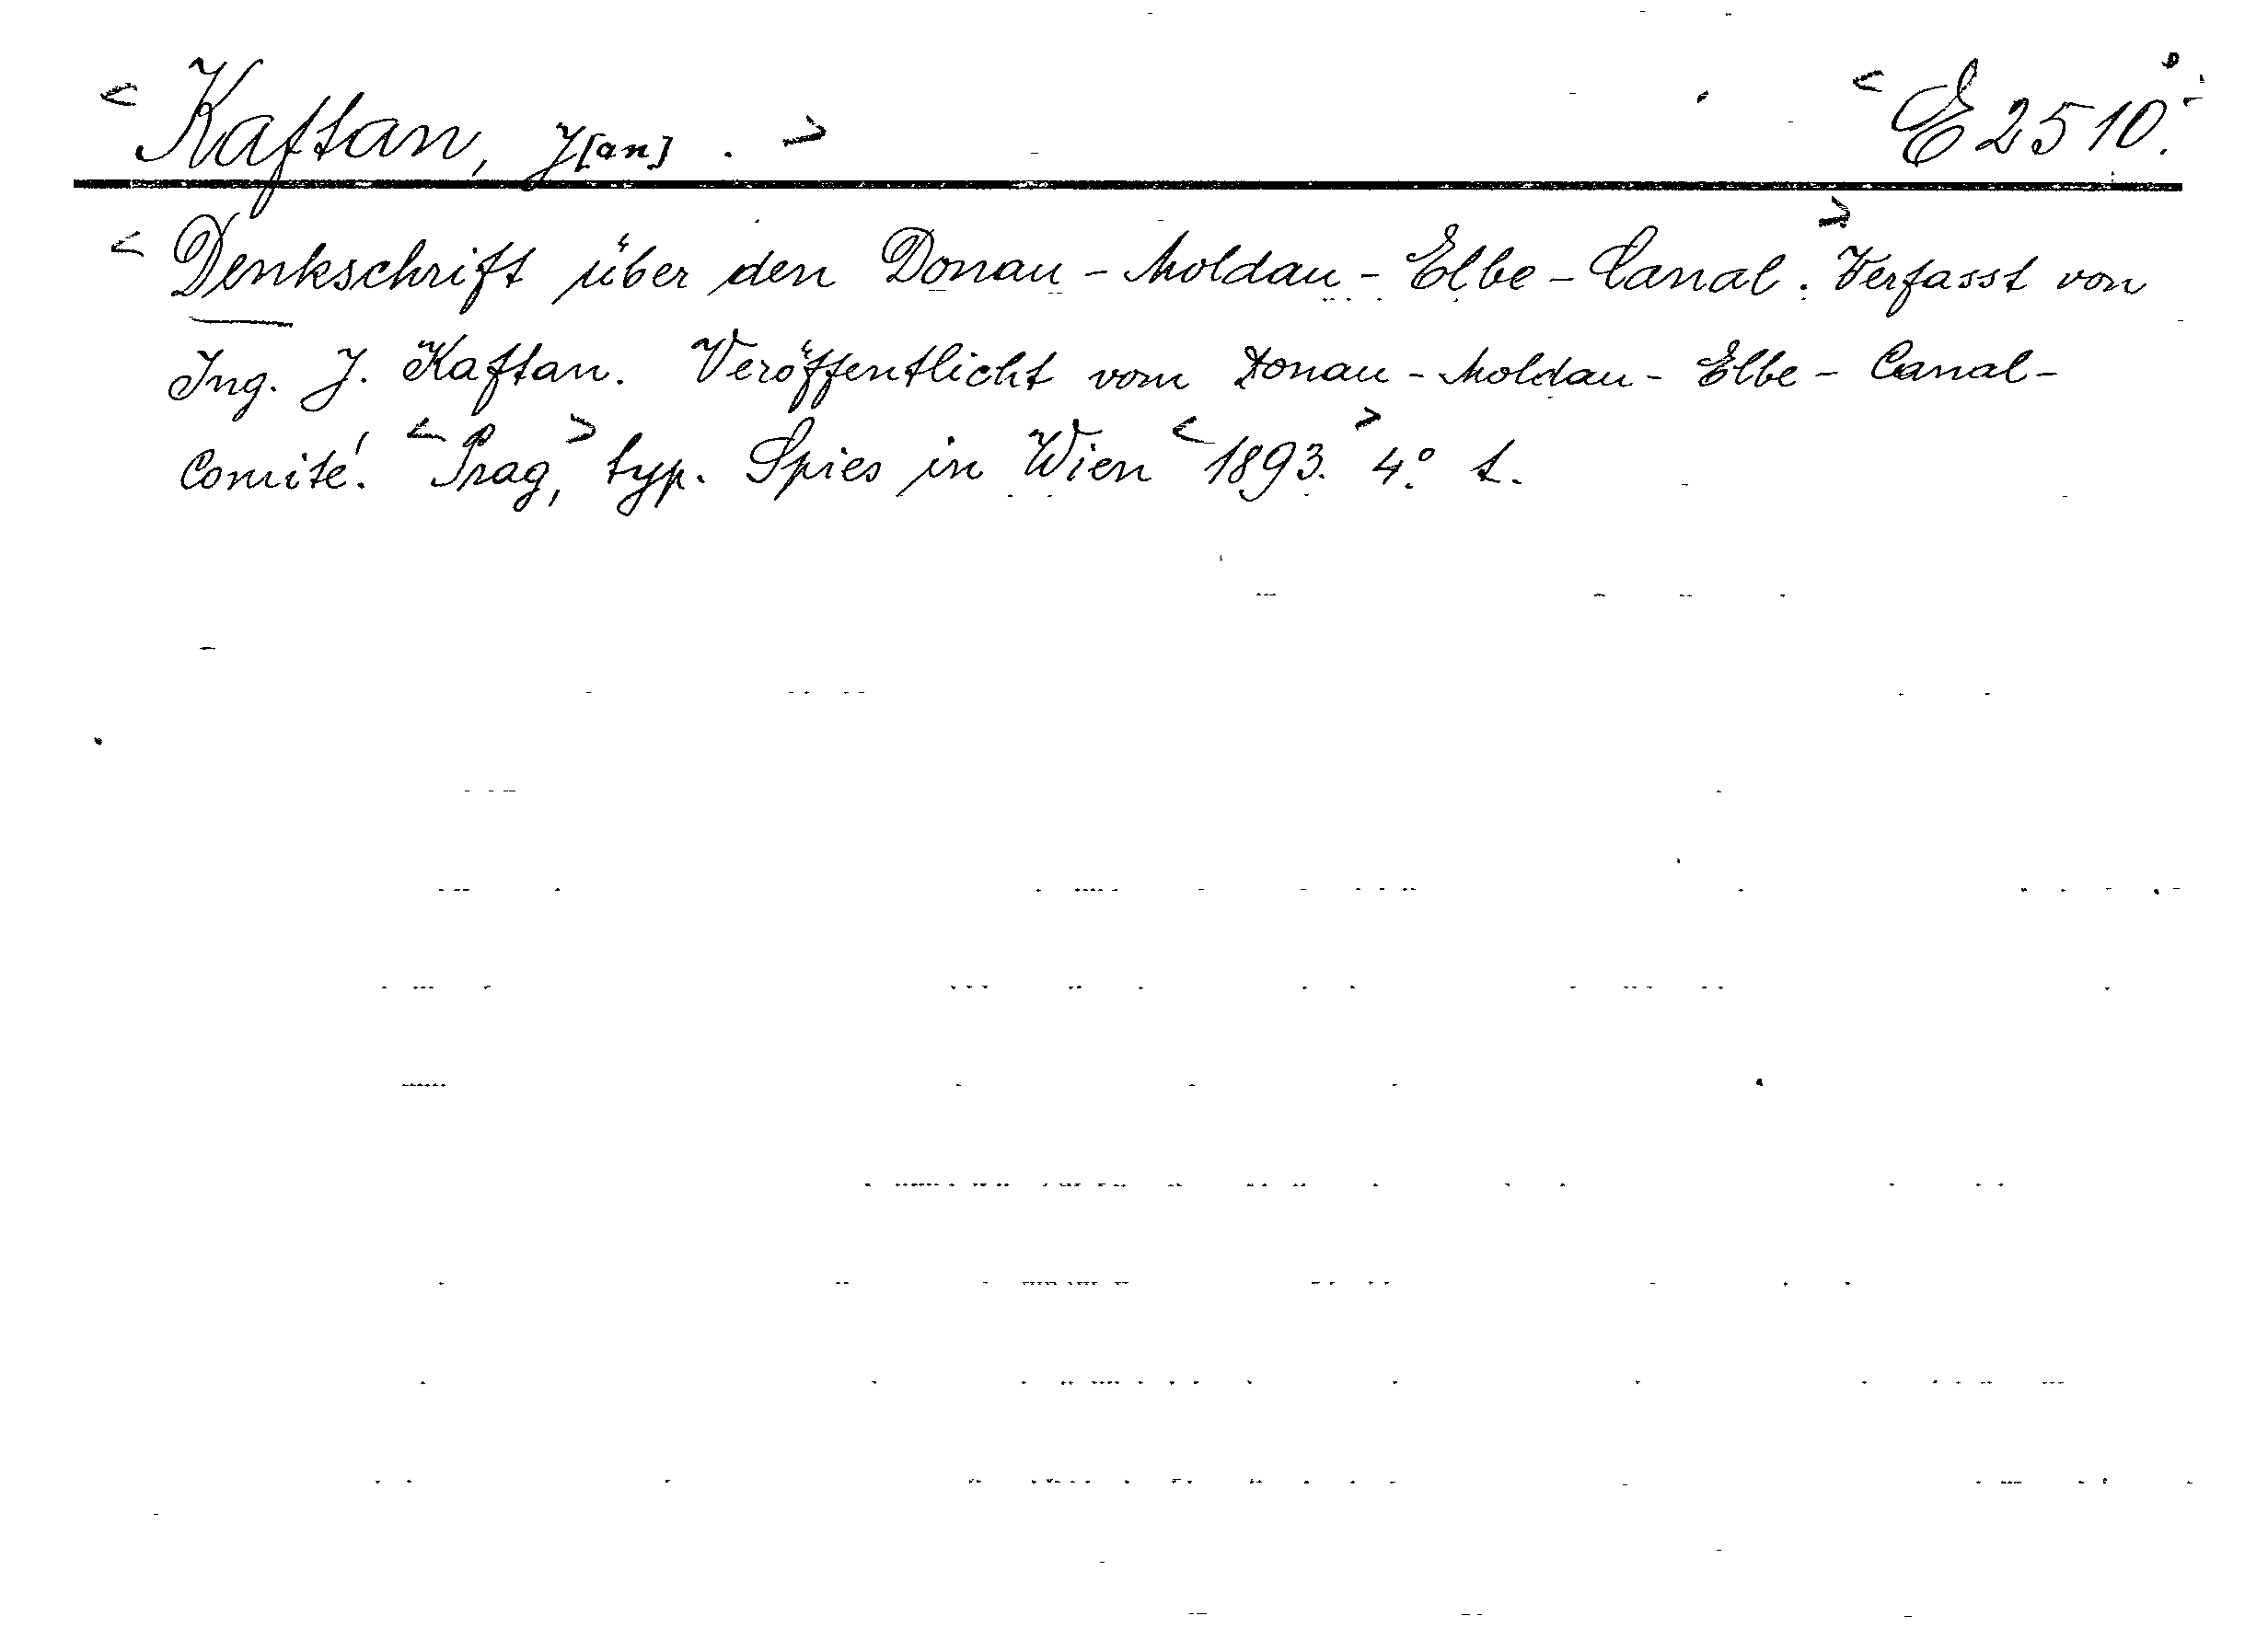 < Kaftan, J[an] . > < E 2510.
< Denkschrift über den Donau - Moldau - Elbe - Canal. > Verfasst von
Ing. J. Kaftan. Veröffentlicht vom Donau - Moldau - Elbe - Canal -
Comité. < Prag, > typ. Spies in Wien < 1893. > 4.° t.